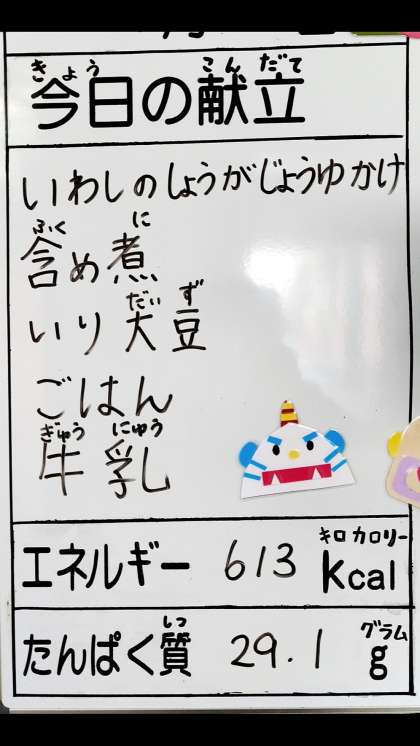 きょう こんだて
今日の献立
いわしのしょうがじょうゆかけ
ふくに
含め煮
だいず
いり大豆
ごはん
ぎゅうにゅう
牛乳
キロカロリー
エネルギー 613 kcal
しつ グラム
たんぱく質 29.1 g